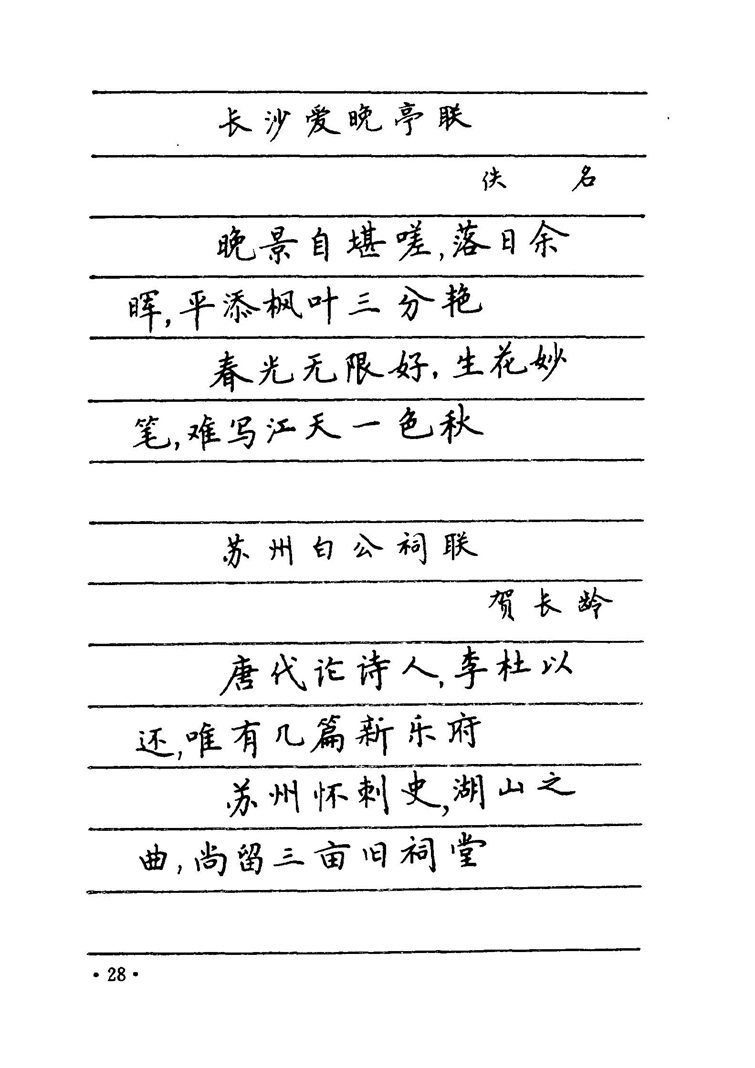 长沙爱晚亭联
佚 名
晚景自堪嗟,落日余
晖,平添枫叶三分艳
春光无限好,生花妙
笔,难写江天一色秋
苏州白公祠联
贺长龄
唐代论诗人,李杜以
还,唯有几篇新乐府
苏州怀刺史,湖山之
曲,尚留三亩旧祠堂
·28·